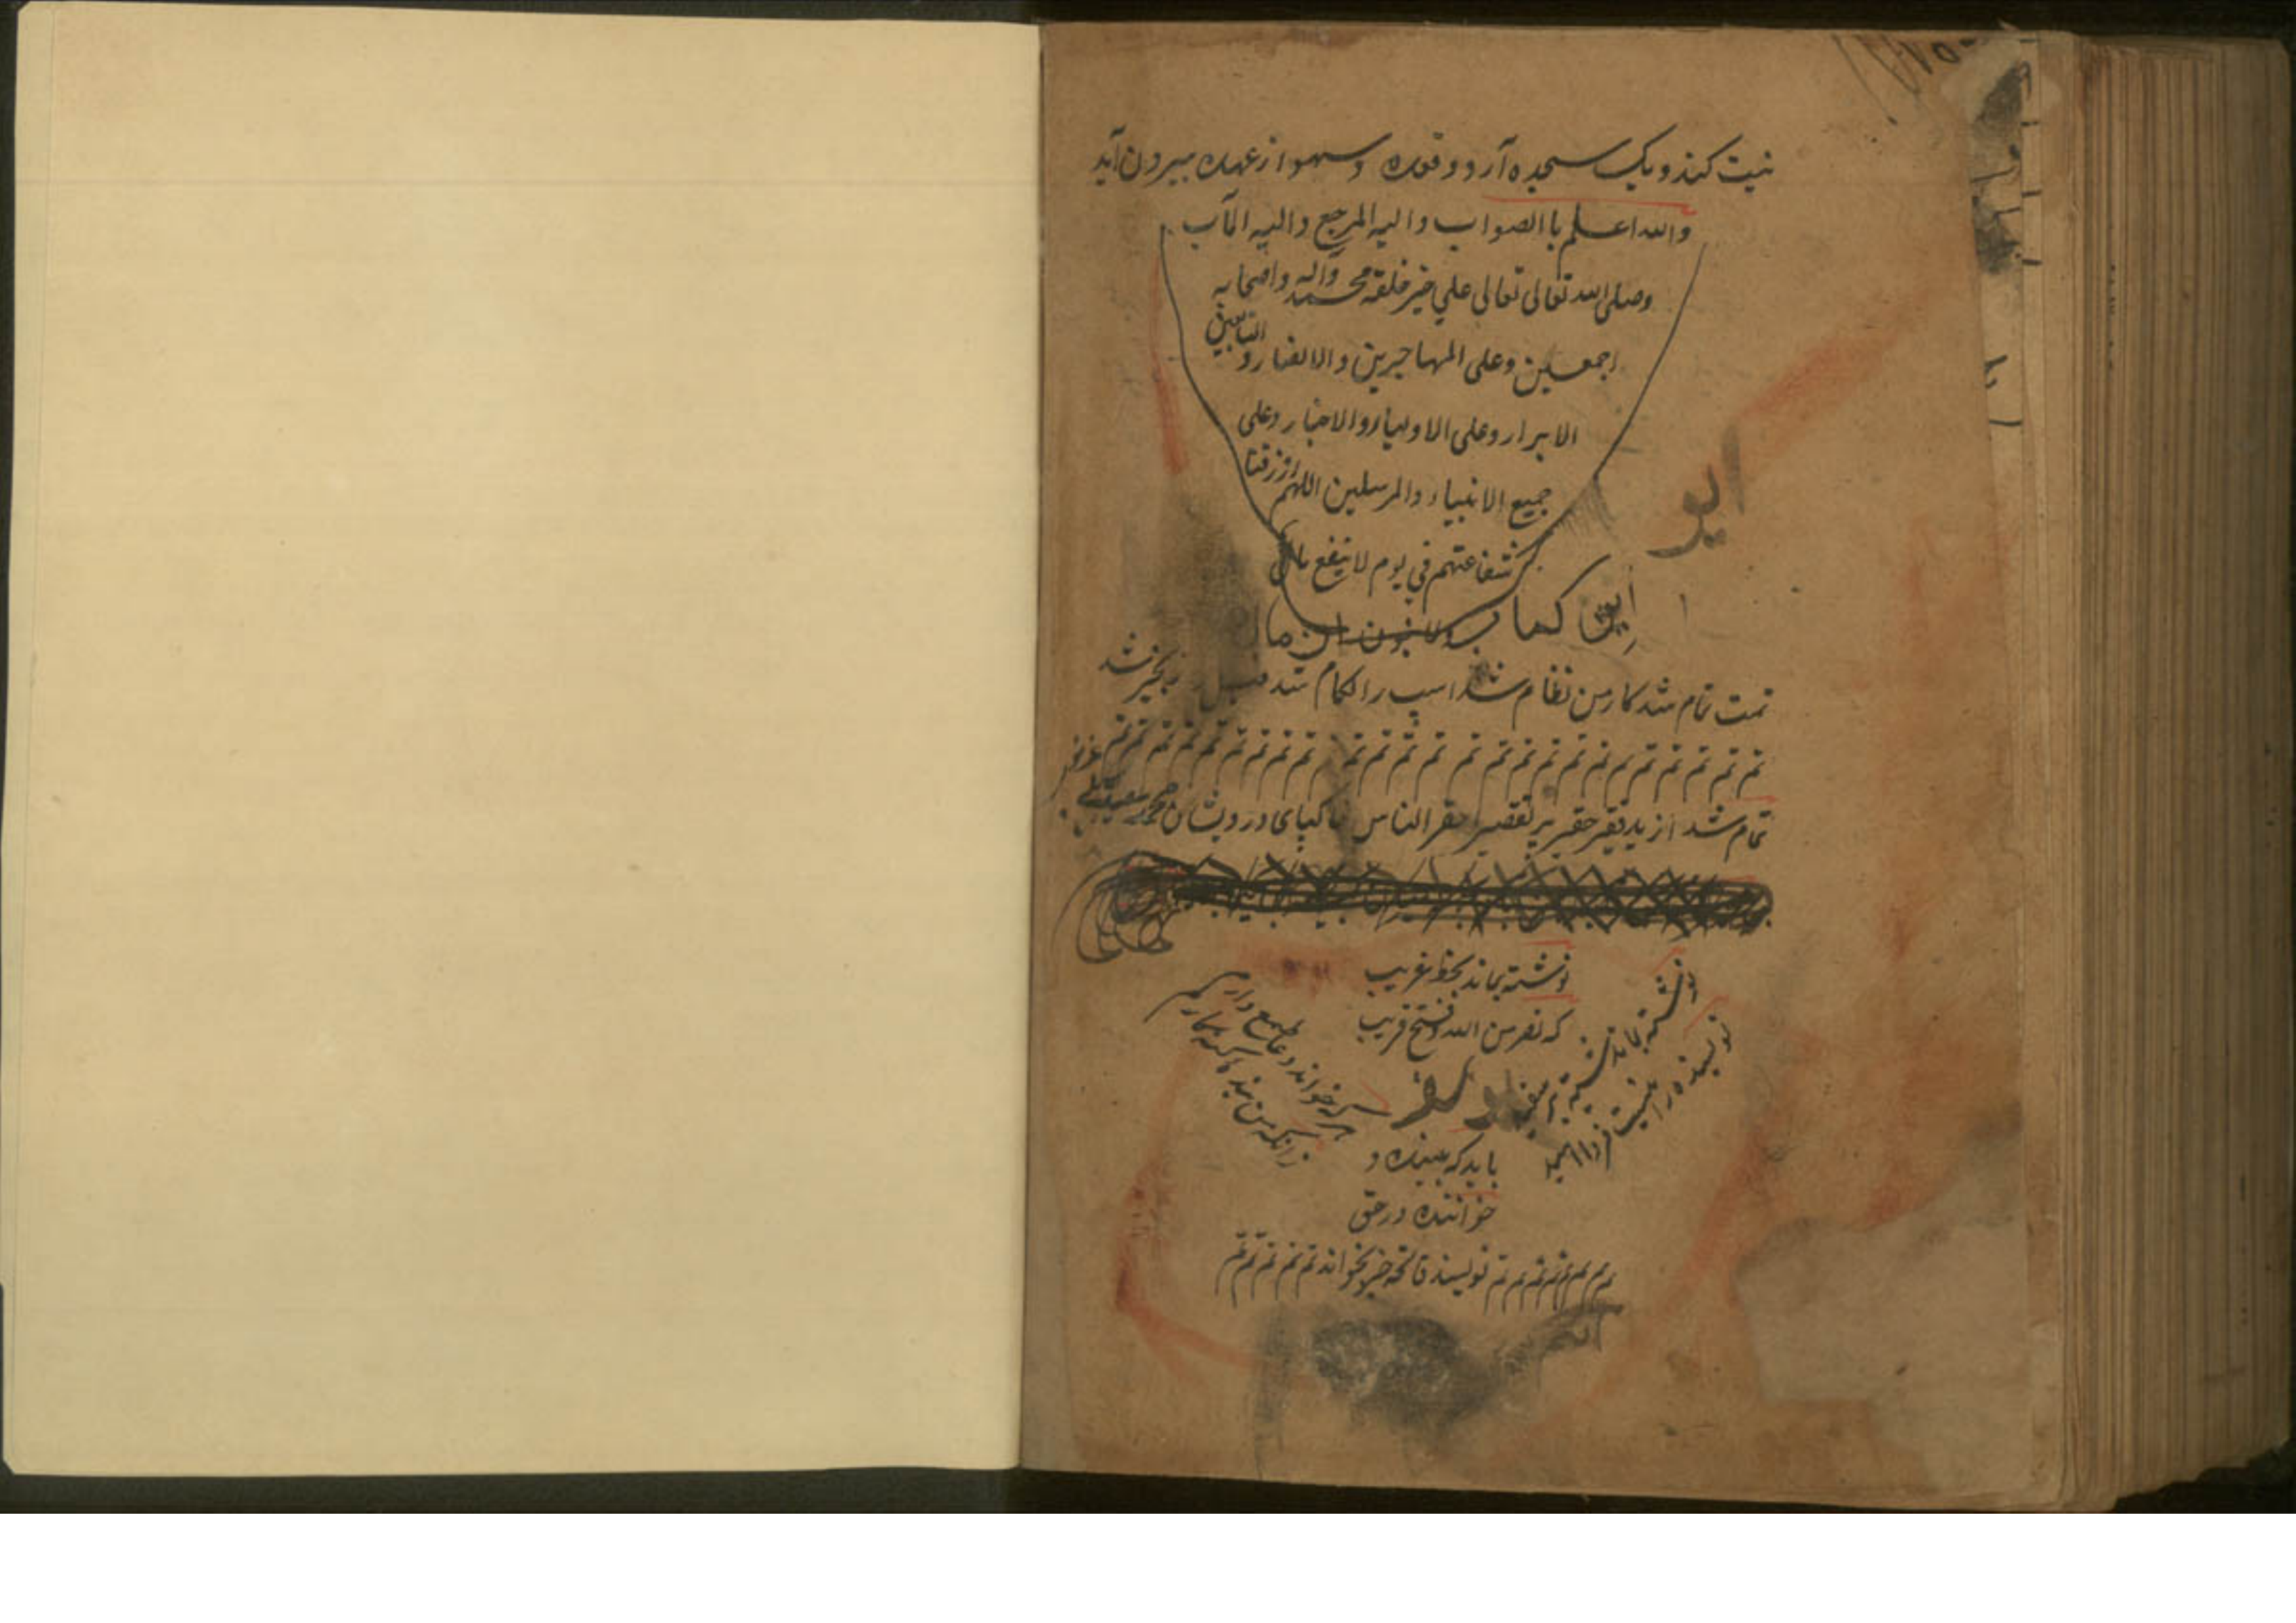 نیت کند و یک سجده آرد و وقعده و سهو از عهده بیرون آید
والله اعلم باالصواب والیه المرجع والیه المآب
وصلی الله تعالی تعالی علی خیر خلقه محمد وآله واصحابه
اجمعین وعلی المهاجرین والانصار و التابعین
الابرار وعلی الاولیاء والاخیار وعلی
جمیع الانبیاء والمرسلین اللهم ارزقنا
شفاعتهم فی یوم لا ینفع مال
این کتاب
تمت تمام شد کار من نظام شد اسپ را لکام شد فیل زنجیر شد
تم تم تم تم تم تم تم تم تم تم تم تم تم تم تم تم تم تم تم تم تم تم تم تم
تمام شد از ید فقیر حقیر پر تقصیر احقر الناس خاکپای درویشان محمد سعید
نوشته بماند بخط غریب
که نصر من الله و فتح قریب
نوشته بماند سیه بر سفید
نویسنده را نیست فردا امید
هر که خواند دعا طمع دارم
زانکه من بنده گنه گارم
باید که بیننده و
خواننده در حق
تم تم تم تم تم تم تم نویسنده فاتحه خیر بخواند تم تم تم تم تم